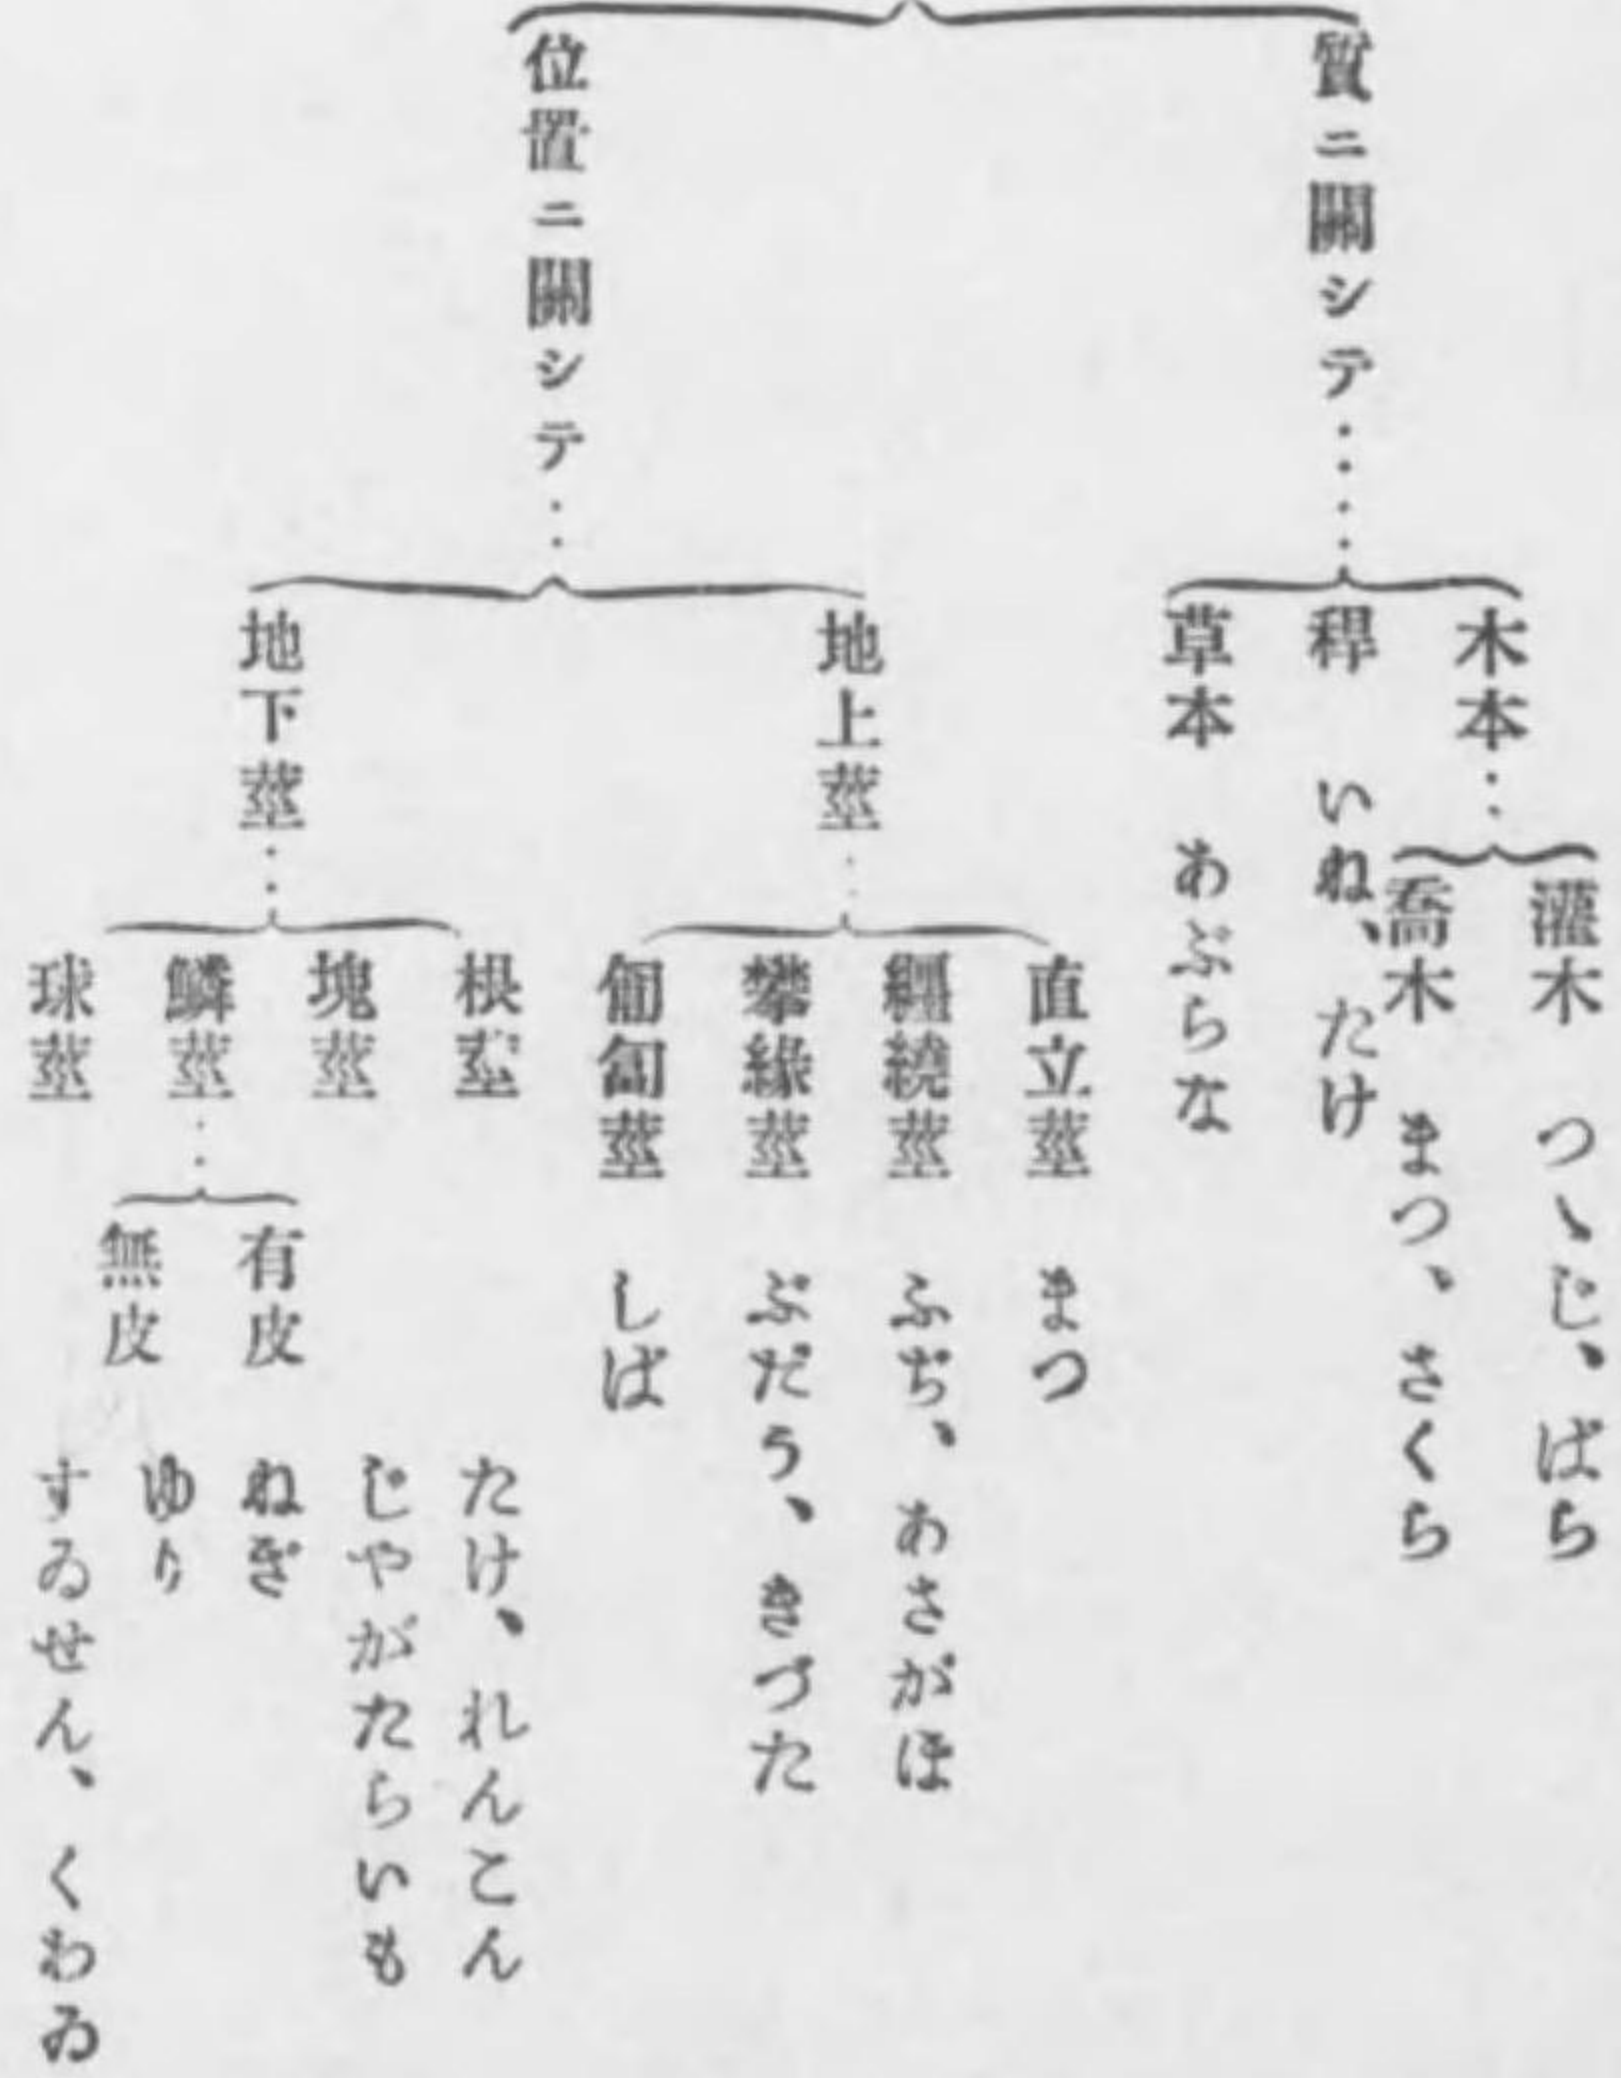 質ニ關シテ‥‥
木本‥
灌木 つゝじ、ばら
喬木 まつ、さくら
稈 いね、たけ
草本 あぶらな
位置ニ關シテ‥
地上莖‥
直立莖 まつ
纒繞莖 ふぢ、あさがほ
攀緣莖 ぶだう、きづた
匍匐莖 しば
地下莖‥
根莖 たけ、れんこん
塊莖 じやがたらいも
鱗莖‥
有皮 ねぎ
無皮 ゆり
球莖 すゐせん、くわゐ